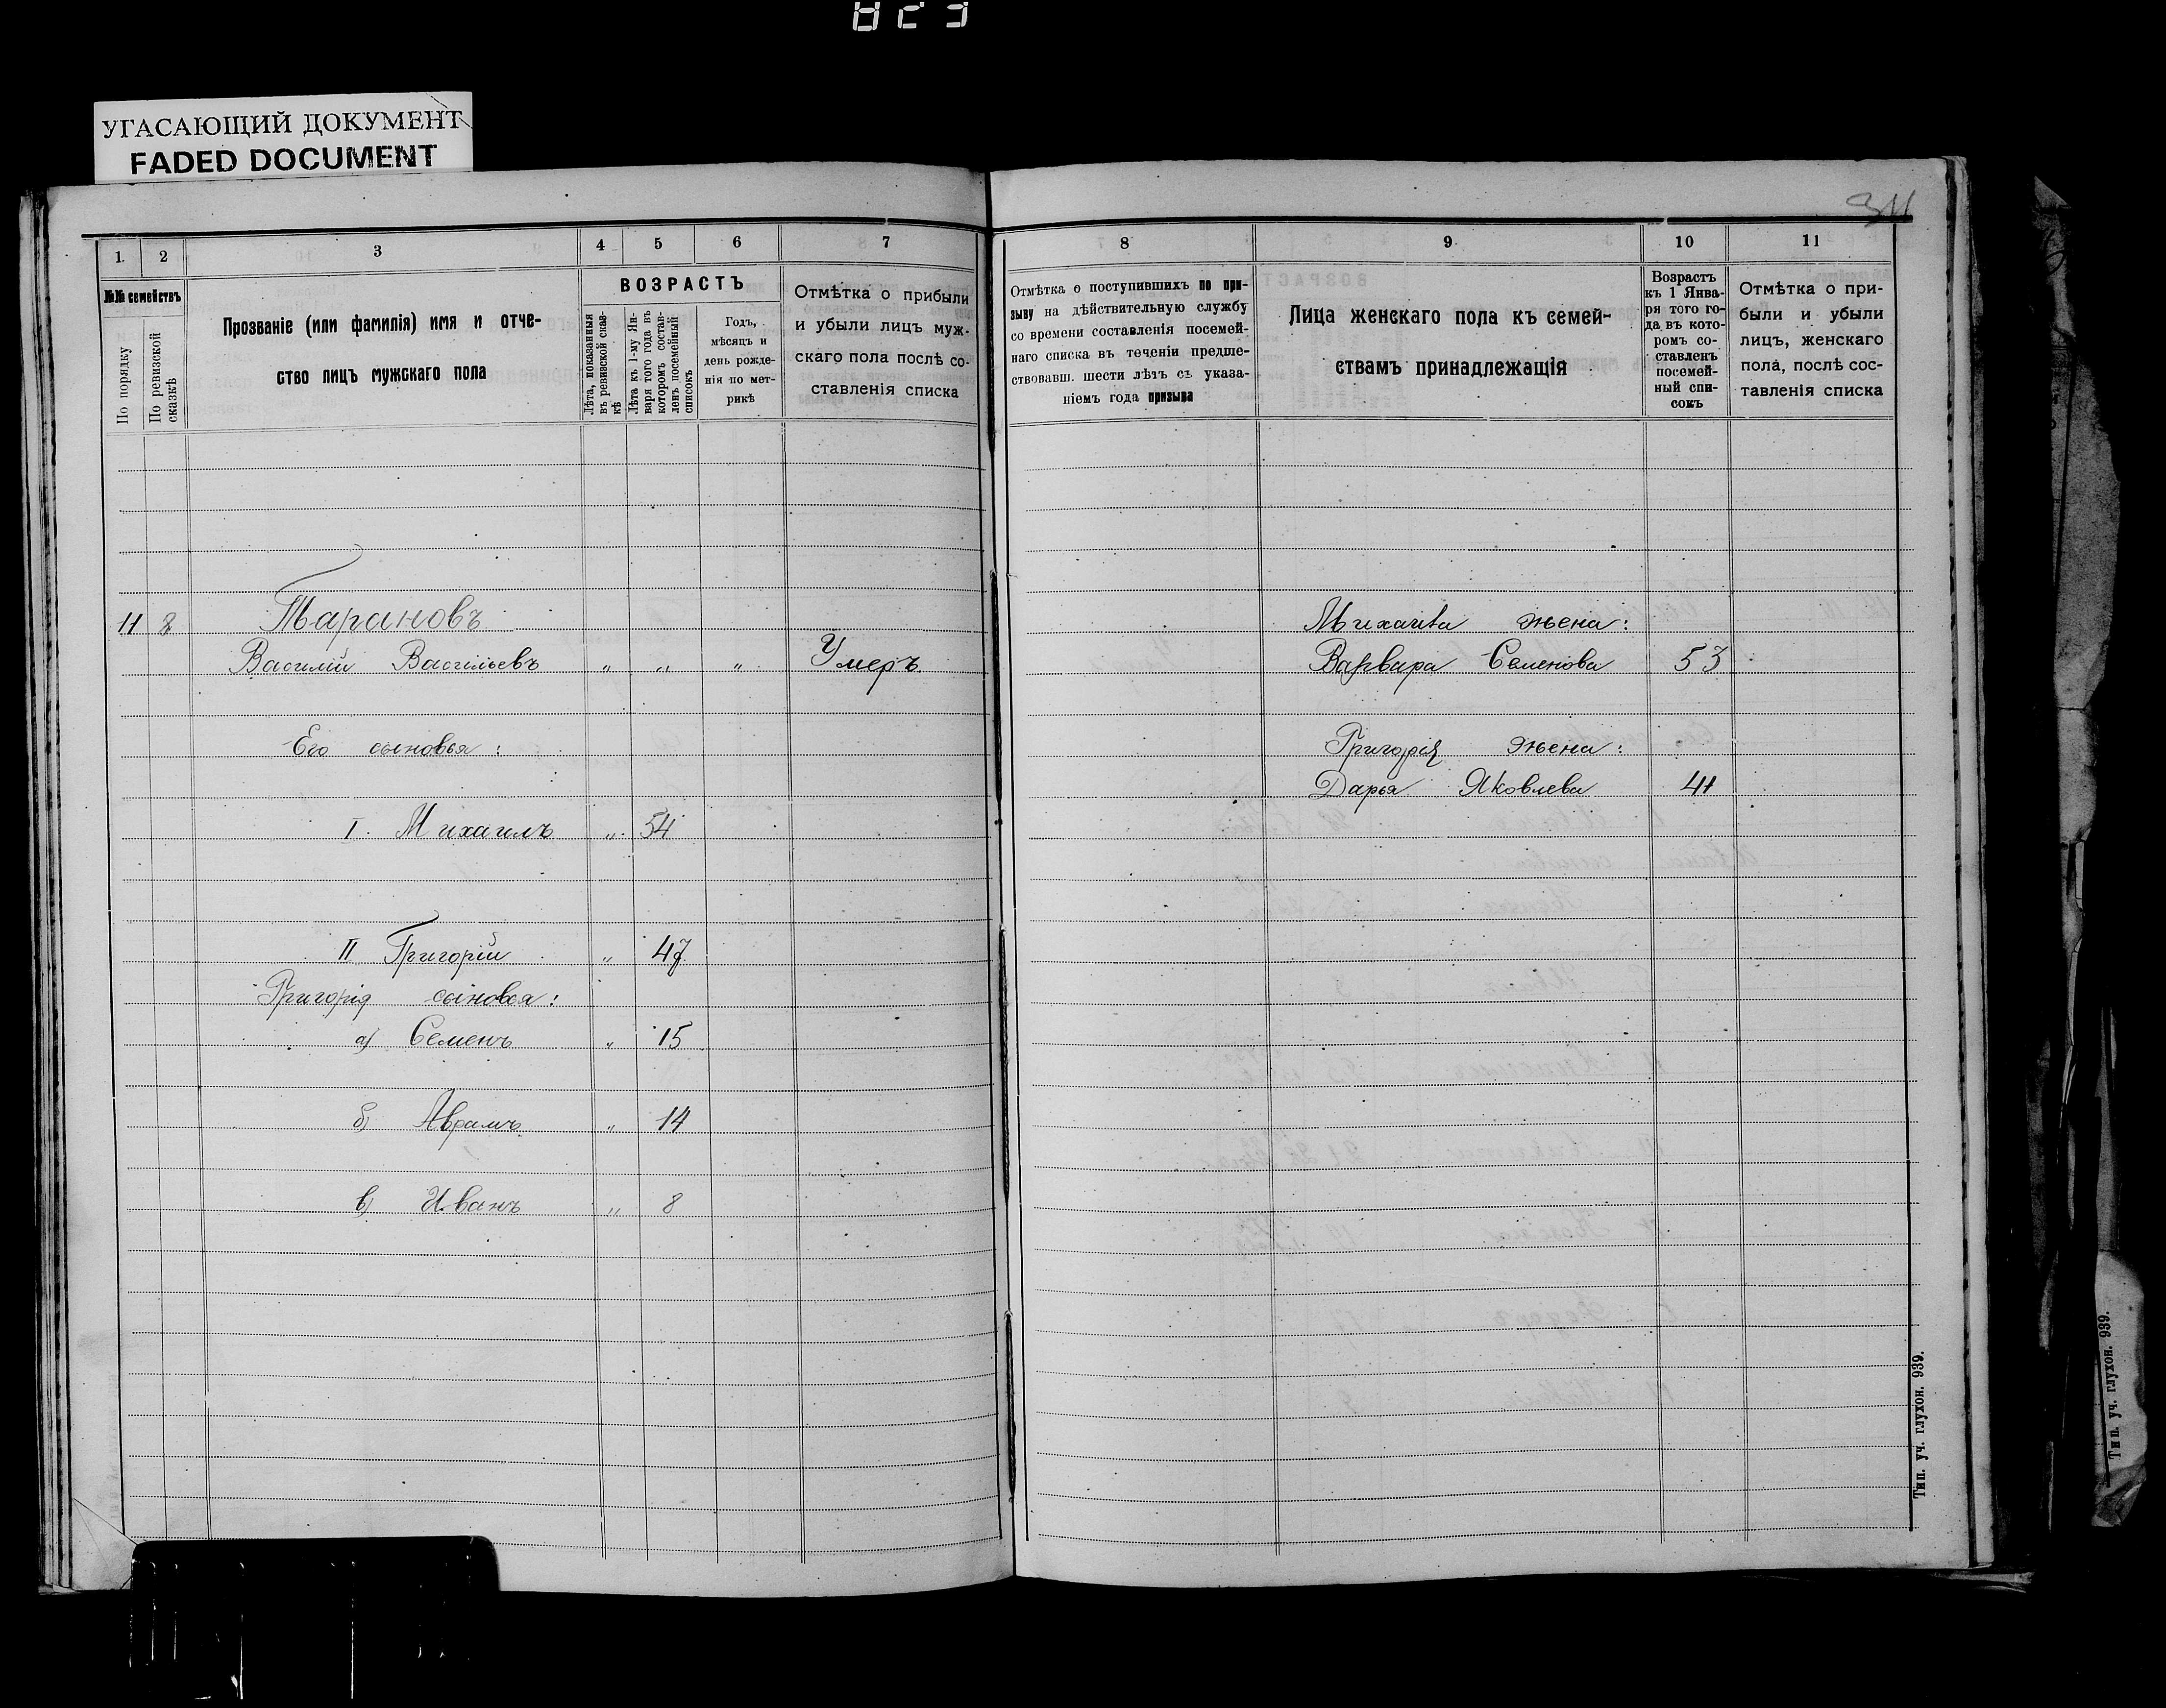 УГАСАЮЩИЙ ДОКУМЕНТ
FADED DOCUMENT
1. 2 3 4 5 6 7
№№ семействъ
По порядку
По ревизской сказкѣ
Прозваніе (или фамилія) имя и отче-
ство лицъ мужскаго пола
ВОЗРАСТЪ
Лѣта, показанныя
въ ревизской сказ-
кѣ
Лѣта къ 1-му Ян-
варя того года въ
которомъ состав-
ленъ посемейный
списокъ
Годъ,
мѣсяцъ и
день рожде-
нія по мет-
рикѣ
Отмѣтка о прибыли
и убыли лицъ муж-
скаго пола послѣ со-
ставленія списка
11 8 Тарановъ
Василій Васильевъ „ „ „ Умеръ
Его сыновья:
I. Михаилъ „ 54
II Григорій „ 47
Григорія сыновья:
а) Семенъ „ 15
б) Аврамъ „ 14
в) Иванъ „ 8
8 9 10 11
Отмѣтка о поступившихъ по при-
зыву на дѣйствительную службу
со времени составленія посемей-
наго списка въ теченіи предше-
ствовавш. шести лѣтъ съ указа-
ніемъ года призыва
Лица женскаго пола къ семей-
ствамъ принадлежащія
Возрастъ
къ 1 Янва-
ря того го-
да въ кото-
ромъ со-
ставленъ
посемей-
ный спи-
сокъ
Отмѣтка о при-
были и убыли
лицъ, женскаго
пола, послѣ сос-
тавленія списка
Михаила жена:
Варвара Семенова 53
Григорія жена:
Дарья Яковлева 41
Тип. уч. глухон. 939.
Тип. уч. глухон. 939.